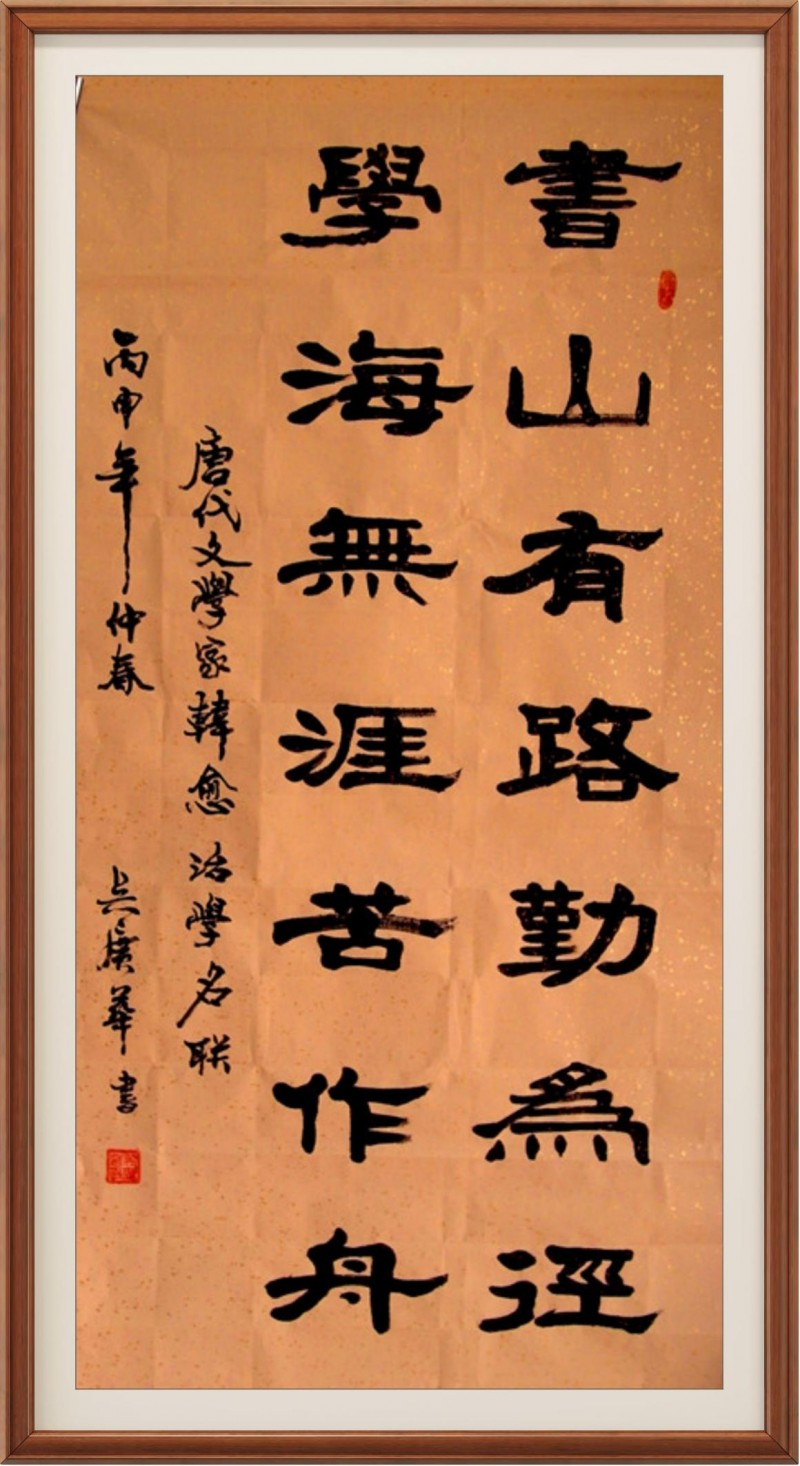 書山有路勤為徑
學海無涯苦作舟
唐代文學家韓愈治學名联
丙申年仲春 吴廣華書